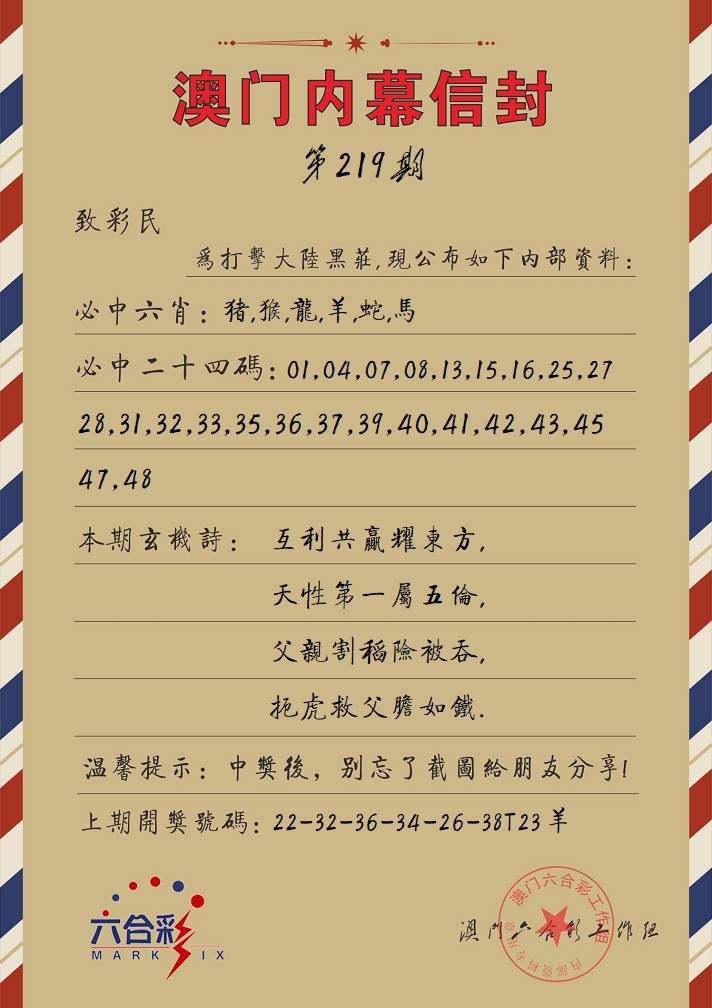 澳门内幕信封
第219期
致彩民
為打擊大陸黑莊,現公布如下内部資料:
必中六肖:猪,猴,龍,羊,蛇,馬
必中二十四碼:01,04,07,08,13,15,16,25,27
28,31,32,33,35,36,37,39,40,41,42,43,45
47,48
本期玄機詩: 互利共贏耀東方,
天性第一屬五倫,
父親割稻險被吞,
扼虎救父膽如鐵.
温馨提示:中獎後,别忘了截圖給朋友分享!
上期開獎號碼:22-32-36-34-26-38T23羊
六合彩
MARK SIX
澳门六合彩工作组
澳门六合彩工作组
内部资料专用章